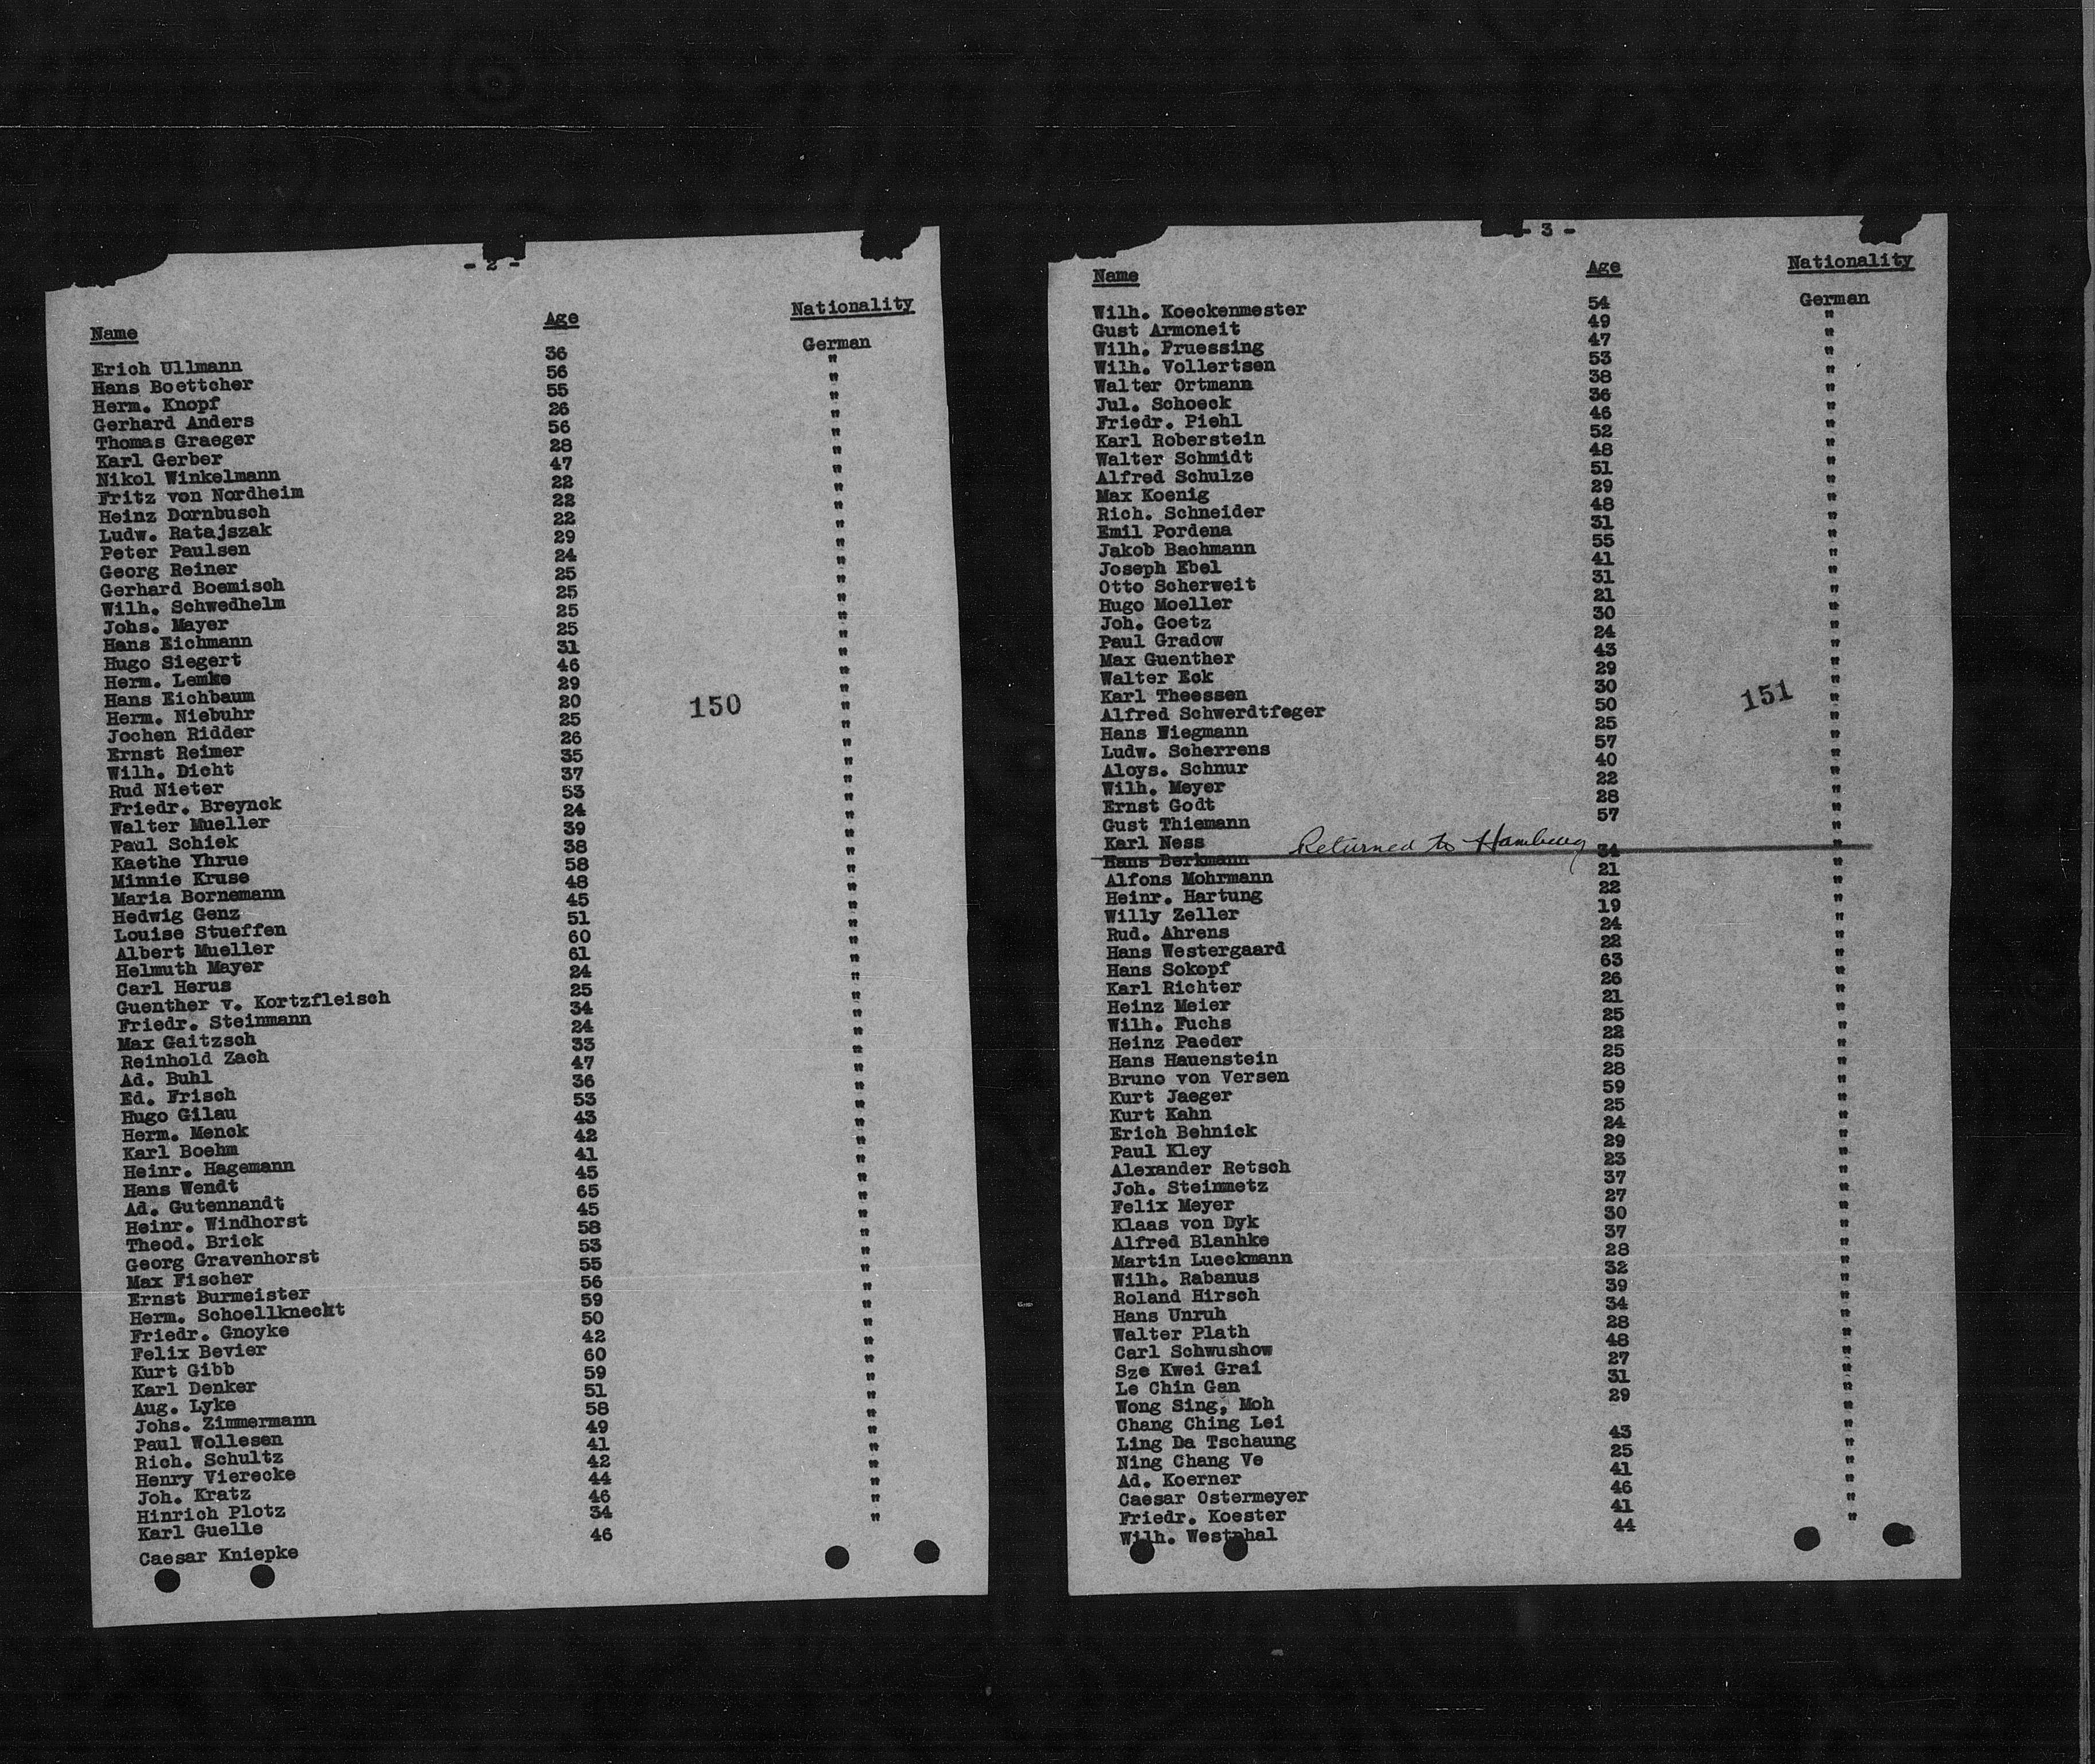 - 2 -
Name Age Nationality
Erich Ullmann 36 German
Hans Boettcher 56 "
Herm. Knopf 55 "
Gerhard Anders 26 "
Thomas Graeger 56 "
Karl Gerber 28 "
Nikol Winkelmann 47 "
Fritz von Nordheim 22 "
Heinz Dornbusch 22 "
Ludw. Ratajszak 22 "
Peter Paulsen 29 "
Georg Reiner 24 "
Gerhard Boemisch 25 "
Wilh. Schwedhelm 25 "
Johs. Mayer 25 "
Hans Eichmann 25 "
Hugo Siegert 31 "
Herm. Lemke 46 "
Hans Eichbaum 29 "
Herm. Niebuhr 20 150 "
Jochen Ridder 25 "
Ernst Reimer 26 "
Wilh. Dicht 35 "
Rud Nieter 37 "
Friedr. Breynck 53 "
Walter Mueller 24 "
Paul Schiek 39 "
Kaethe Yhrue 38 "
Minnie Kruse 58 "
Maria Bornemann 48 "
Hedwig Genz 45 "
Louise Stueffen 51 "
Albert Mueller 60 "
Helmuth Mayer 61 "
Carl Herus 24 "
Guenther v. Kortzfleisch 25 "
Friedr. Steinmann 34 "
Max Gaitzsch 24 "
Reinhold Zach 33 "
Ad. Buhl 47 "
Ed. Frisch 36 "
Hugo Gilau 53 "
Herm. Menck 43 "
Karl Boehm 42 "
Heinr. Hagemann 41 "
Hans Wendt 45 "
Ad. Gutennandt 65 "
Heinr. Windhorst 45 "
Theod. Brick 58 "
Georg Gravenhorst 53 "
Max Fischer 55 "
Ernst Burmeister 56 "
Herm. Schoellknecht 59 "
Friedr. Gnoyke 50 "
Felix Bevier 42 "
Kurt Gibb 60 "
Karl Denker 59 "
Aug. Lyke 51 "
Johs. Zimmermann 58 "
Paul Wollesen 49 "
Rich. Schultz 41 "
Henry Vierecke 42 "
Joh. Kratz 44 "
Hinrich Plotz 46 "
Karl Guelle 34 "
Caesar Kniepke 46 "
- 3 -
Name Age Nationality
Wilh. Koeckenmester 54 German
Gust Armoneit 49 "
Wilh. Pruessing 47 "
Wilh. Vollertsen 53 "
Walter Ortmann 38 "
Jul. Schoeck 36 "
Friedr. Piehl 46 "
Karl Roberstein 52 "
Walter Schmidt 48 "
Alfred Schulze 51 "
Max Koenig 29 "
Rich. Schneider 48 "
Emil Pordena 31 "
Jakob Bachmann 55 "
Joseph Ebel 41 "
Otto Scherweit 31 "
Hugo Moeller 21 "
Joh. Goetz 30 "
Paul Gradow 24 "
Max Guenther 43 "
Walter Eck 29 "
Karl Theessen 30 151 "
Alfred Schwerdtfeger 50 "
Hans Wiegmann 25 "
Ludw. Scherrens 57 "
Aloys. Schnur 40 "
Wilh. Meyer 22 "
Ernst Godt 28 "
Gust Thiemann 57 "
Karl Ness "
Hans Berkmann Returned to Hamburg 34 "
Alfons Mohrmann 21 "
Heinr. Hartung 22 "
Willy Zeller 19 "
Rud. Ahrens 24 "
Hans Westergaard 22 "
Hans Sokopf 63 "
Karl Richter 26 "
Heinz Meier 21 "
Wilh. Fuchs 25 "
Heinz Paeder 22 "
Hans Hauenstein 25 "
Bruno von Versen 28 "
Kurt Jaeger 59 "
Kurt Kahn 25 "
Erich Behnick 24 "
Paul Kley 29 "
Alexander Retsch 23 "
Joh. Steinmetz 37 "
Felix Meyer 27 "
Klaas von Dyk 30 "
Alfred Blanhke 37 "
Martin Lueckmann 28 "
Wilh. Rabanus 32 "
Roland Hirsch 39 "
Hans Unruh 34 "
Walter Plath 28 "
Carl Schwushow 48 "
Sze Kwei Grai 27 "
Le Chin Gan 31 "
Wong Sing, Moh 29 "
Chang Ching Lei "
Ling Da Tschaung 43 "
Ning Chang Ve 25 "
Ad. Koerner 41 "
Caesar Ostermeyer 46 "
Friedr. Koester 41 "
Wilh. Westphal 44 "